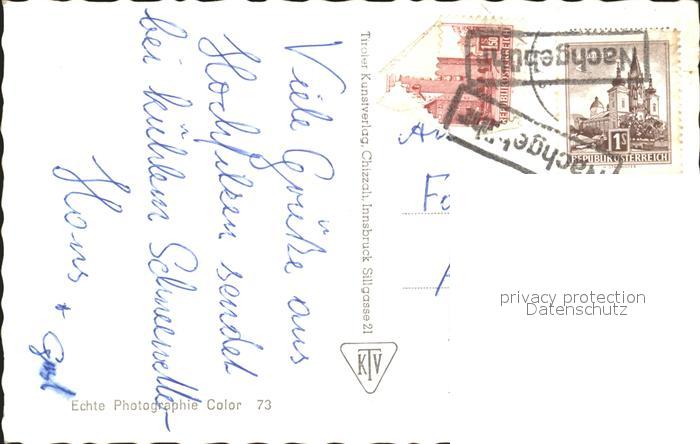 Viele Grüße aus
Hochfilzen sendet
bei kühlem Schneewetter
Hans +
Echte Photographie Color 73
Tiroler Kunstverlag, Chizzali, Innsbruck Sillgasse 21
KTV
REPUBLIK ÖSTERREICH
Nachgebühr
Nachgebühr
1S
REPUBLIK ÖSTERREICH
privacy protection
Datenschutz